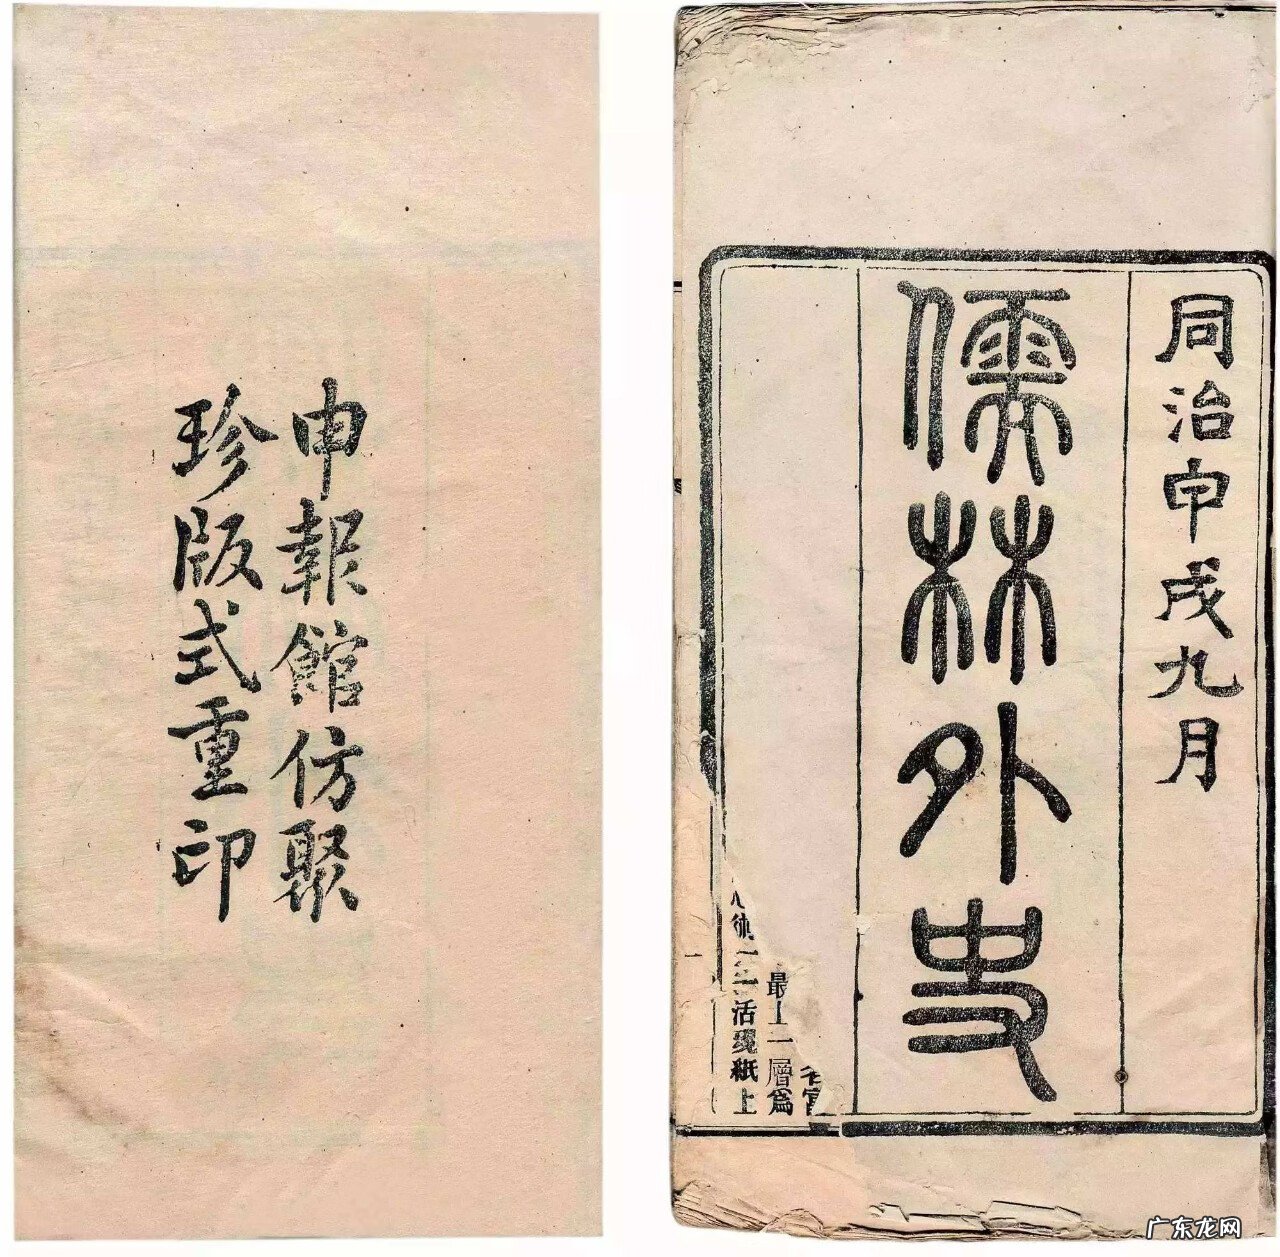 同治甲戌九月
儒林外史
最上一層爲
活現紙上
申報館仿聚
珍版式重印
广东龙网